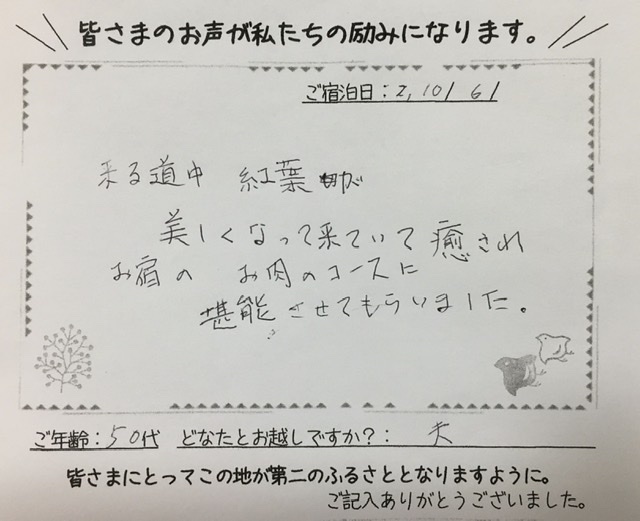 皆さまのお声が私たちの励みになります。
ご宿泊日：2,10/6/
来る道中 紅葉が
美しくなって来ていて癒され
お宿の お肉のコースに
堪能させてもらいました。
ご年齢：50代 どなたとお越しですか？： 夫
皆さまにとってこの地が第二のふるさととなりますように。
ご記入ありがとうございました。